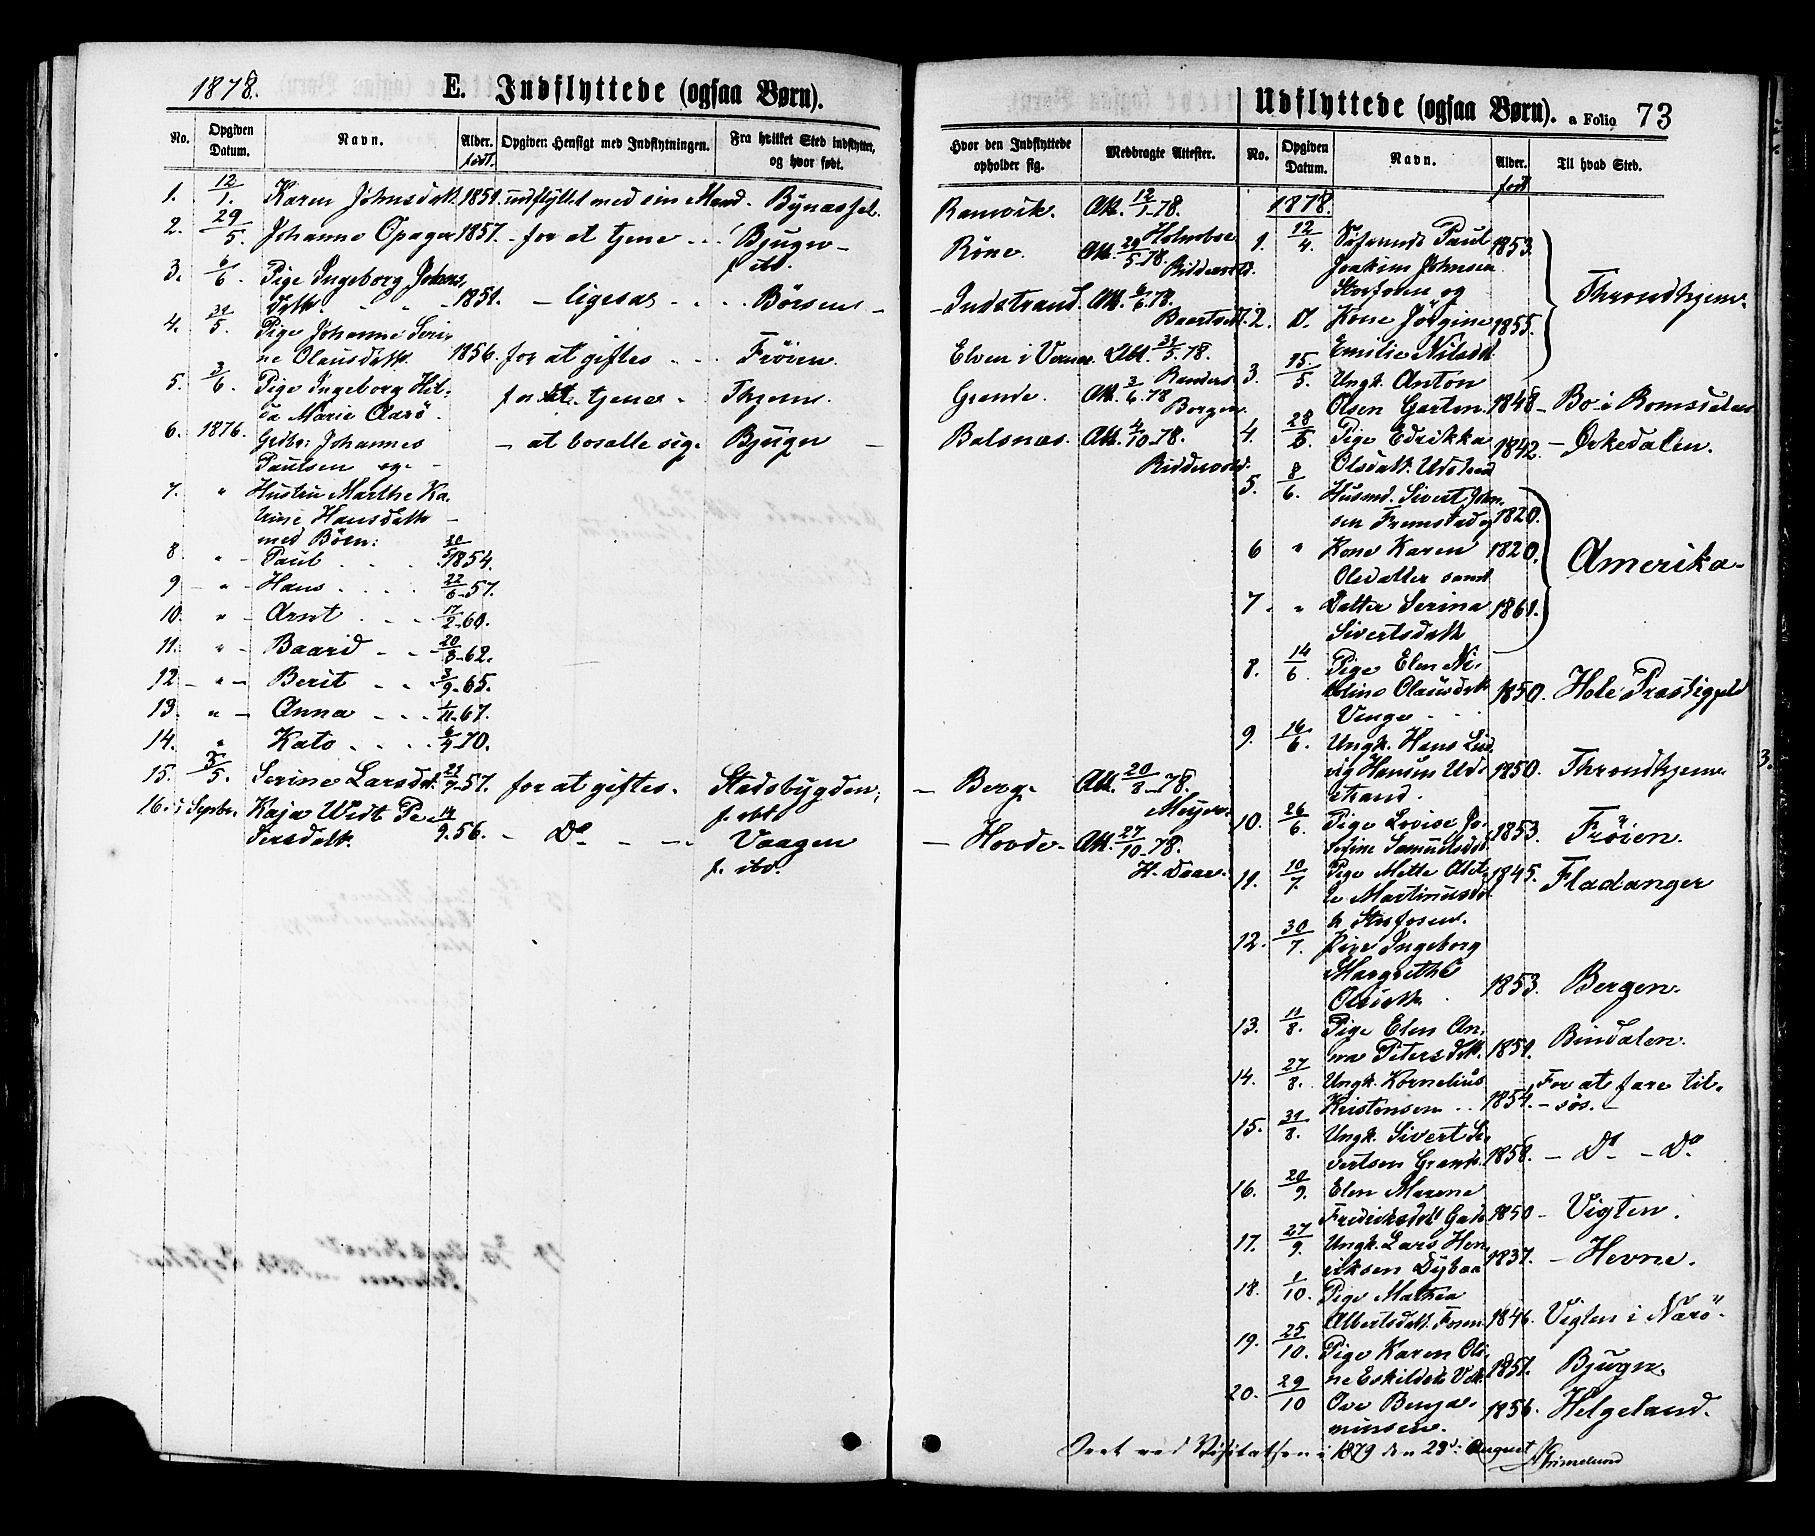 1878.
E. Indflyttede (ogsaa Børn).
No. Opgiven Datum. Navn. Alder. født. Opgiven Hensigt med Indflytningen. Fra hvilket Sted indflyttet, og hvor født.
1. 12/1. Karen Johnsdatt. 1851. indflyttet med sin Mand. Bynæsset.
2. 29/5. Johanna Opager 1857. - for at tjene Bjugn
f. ibd.
3. 6/6. Pige Ingeborg Johns
Datt. 1851. - ligesaa Børsen
4. 31/5. Pige Johanne Seri-
ne Olausdatt. 1856. for at giftes Frøien.
5. 3/6. Pige Ingeborg Hel-
da Marie Aarø. for at tjene Thjem.
6. 1876. Johannes - at bosætte sig. Bjugn
Paulsen og
7. " Hustru Marthe Ka-
trine Hansdatt.
med Børn:
8 " Paul 1854.
9 " Hans 22/6-57.
10. " Arnt 17/2-60.
11. " Baard 20/8-62.
12 " Berit 3/9-65.
13. " Anna 1/11-67.
14. " Kato 70.
15. 3/5. Serine Larsdt. 57. for at giftes. Stadsbygden;
f. ibd.
16. i Septbr. Kaja Widt Pe-
tersdatt. 14/9.56. - Do Vaagen
f. ibd.
Hvor den Indflyttede opholder sig. Medbragte Attester.
Ramvik. Att. 12/1-78.
Holmboe
Röne. Att. 29/5.78.
Ridderwold.
Indstrand. Att. 6/6.78.
Elven i Att. 31/5.78.
Grande. Att. 3/6.78
Borgen.
Balsnæs. Att. 4/10-78.
Ridderwold.
Berg. Att. 20/8-78.
Meyer.
Hovde. Att. 27/10-78.
H. Daae.
Udflyttede (ogsaa Børn). a Folio 73
No. Opgiven Datum. Navn. Alder. født Til hvad Sted.
1878.
1. 12/4. Paul 1853.
Joakim Johnsen
Storfosen og Throndhjem.
2. D. Kone Jörgine 1855.
Emilie Nilsdt.
3. 15/5. Ungk. Anton
Olsen Garten 1848. Bo i Romsdalen
4. 28/5. Pige Edrikka 1842. - Ørkedalen.
Olsdatt. Udstrand
5. 8/6. Husmd. Sivert John-
sen Fremstad og 1820.
6 " Kone Karen 1820. Amerika
Olsdatter samt
7 " Datter Serina 1861.
Sivertsdatt
8. 14/6. Pige Elen Ni-
coline Olausdatt 1850. Hole Præstegjeld
Vinge
9. 16/6. Ungk. Hans Lud-
vig Hansen Ud- 1850. Throndhjem
strand.
10. 26/6. Pige Lovise Jo-
sefine Samuelsdt 1853. Frøien.
11. 10/7. Pige Mette Olet-
te Martinusdt. 1845. Fladanger
Storfosen.
12. 30/7. Pige Ingeborg
Margrethe 1853. Bergen.
Olsdatt.
13. 11/8. Pige Elen An-
na Petersdatt. 1851. Bindalen.
14. 27/8. Ungk. Kornelius For at fare til-
Kristensen 1854. - søs.
15. 31/8. Ungk. Sivert Si-
vertsen Grande. 1858. - Do - Do
16. 20/9. Elen Marene
Fredriksdatt 1850 - Vigten.
17. 27/9. Ungk. Lars Hen-
riksen Dybaa 1837. - Hevne.
18. 1/10. Pige Mathea
Albertsdatt. Fosen 1846. Vigten i Nærö.
19. 25/10. Pige Karen Oli-
ne Eskildsdt. 1857. Bjugn.
20. 29/10 Ove Benja-
minsen. 1856. Helgeland.
Seet ved Visitatsen i 1879 den 23de August Grimelund